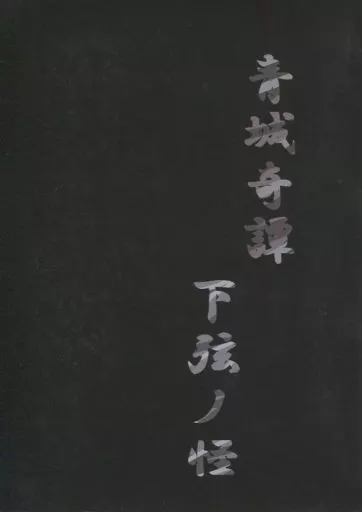 青城奇譚
下弦ノ怪